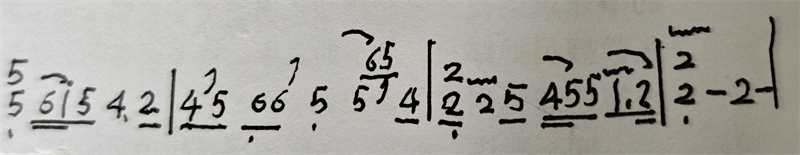 5 65 2 2
5 615 4. 2 | 45 66 5 5 4 | 2 2 5 455 1.2 | 2 - 2 - |